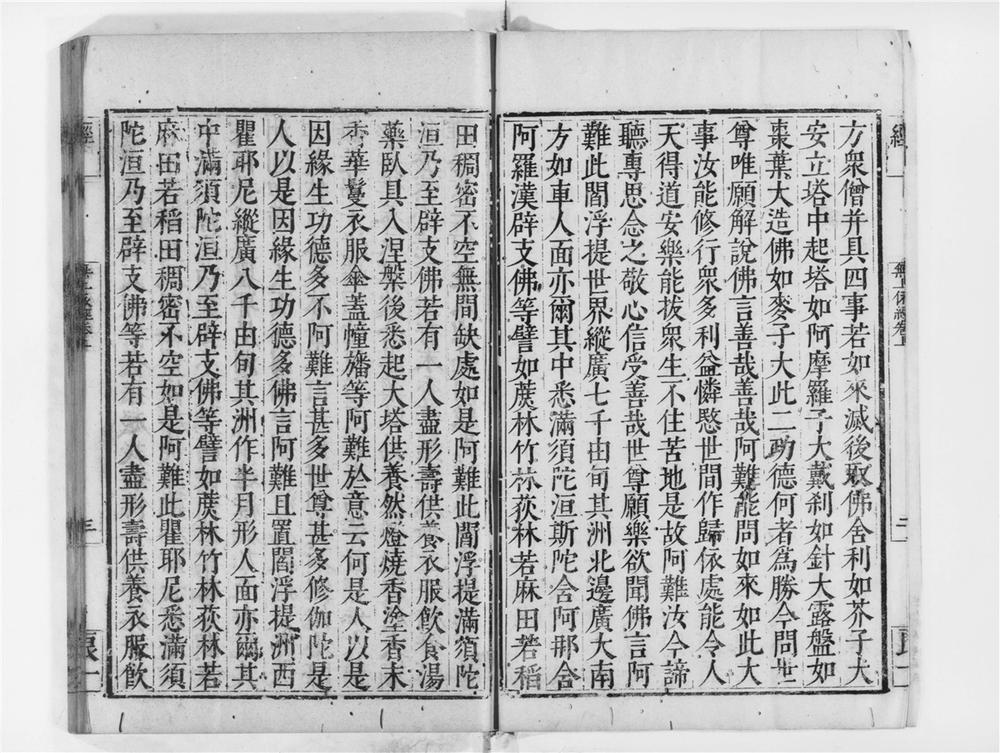 方衆僧并具四事若如來滅後取佛舍利如芥子大
安立塔中起塔如阿摩羅子大戴刹如針大露盤如
棗葉大造佛如麥子大此二功德何者爲勝今問世
尊唯願解說佛言善哉善哉阿難能問如來如此大
事汝能修行衆多利益憐愍世間作歸依處能令人
天得道安樂能拔衆生不住苦地是故阿難汝今諦
聽專思念之敬心信受善哉世尊願樂欲聞佛言阿
難此閻浮提世界縱廣七千由旬其洲北邊廣大南
方如車人面亦爾其中悉滿須陀洹斯陀含阿那含
阿羅漢辟支佛等譬如蔗林竹林荻林若麻田若稻
田稠密不空無間缺處如是阿難此閻浮提滿須陀
洹乃至辟支佛若有一人盡形壽供養衣服飲食湯
藥臥具入涅槃後悉起大塔供養然燈燒香塗香末
香華鬘衣服傘蓋幢旛等阿難於意云何是人以是
因緣生功德多不阿難言甚多世尊甚多修伽陀是
人以是因緣生功德多佛言阿難且置閻浮提洲西
瞿耶尼縱廣八千由旬其洲作半月形人面亦爾其
中滿須陀洹乃至辟支佛等譬如蔗林竹林荻林若
麻田若稻田稠密不空如是阿難此瞿耶尼悉滿須
陀洹乃至辟支佛等若有一人盡形壽供養衣服飲